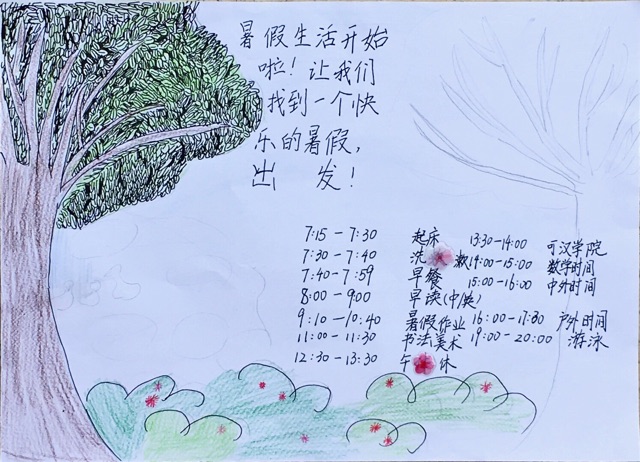 暑假生活开始
啦！让我们
找到一个快
乐的暑假，
出 发！
7:15－7:30 起床 13:30-14:00 可汉学院
7:30－7:40 洗漱 14:00-15:00 数学时间
7:40－7:59 早餐 15:00-16:00 中外时间
8:00－9:00 早读(中/英)
9:10－10:40 暑假作业 16:00-17:30 户外时间
11:00－11:30 书法美术 19:00-20:00 游泳
12:30－13:30 午休